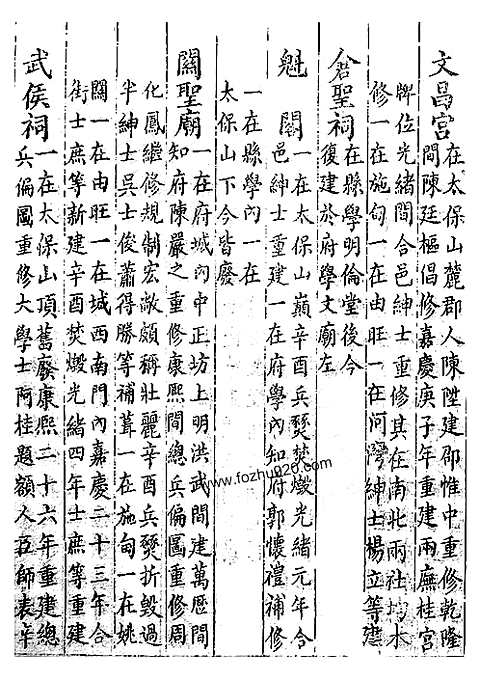 文昌宮在太保山麓郡人陳陞建邵惟中重修乾隆
間陳廷樞倡修嘉慶庚子年重建兩廡桂宮
牌位光緒間合邑紳士重修其在南北兩社均木
修一在施甸一在由旺一在河灣紳士楊立等建
倉聖祠在縣學明倫堂後今
復建於府學文廟左
魁閣一在太保山巔辛酉兵燹焚燬光緒元年合
邑紳士重建一在府學內知府郭懷禮補修
一在縣學內一在
太保山下今皆廢
關聖廟一在府城內中正坊上明洪武間建萬歷間
知府陳嚴之重修康熙間總兵偏圖重修周
化鳳繼修規制宏敞頗稱壯麗辛酉兵燹折毀過
半紳士吳士俊蕭得勝等補葺一在施甸一在姚
關一在由旺一在城西南門內嘉慶二十三年合
街士庶等新建辛酉焚燬光緒四年士庶等重建
武侯祠一在太保山頂舊廢康熙三十六年重建總
兵偏圖重修大學士阿桂題額人臣師表辛
www.fozhu920.com